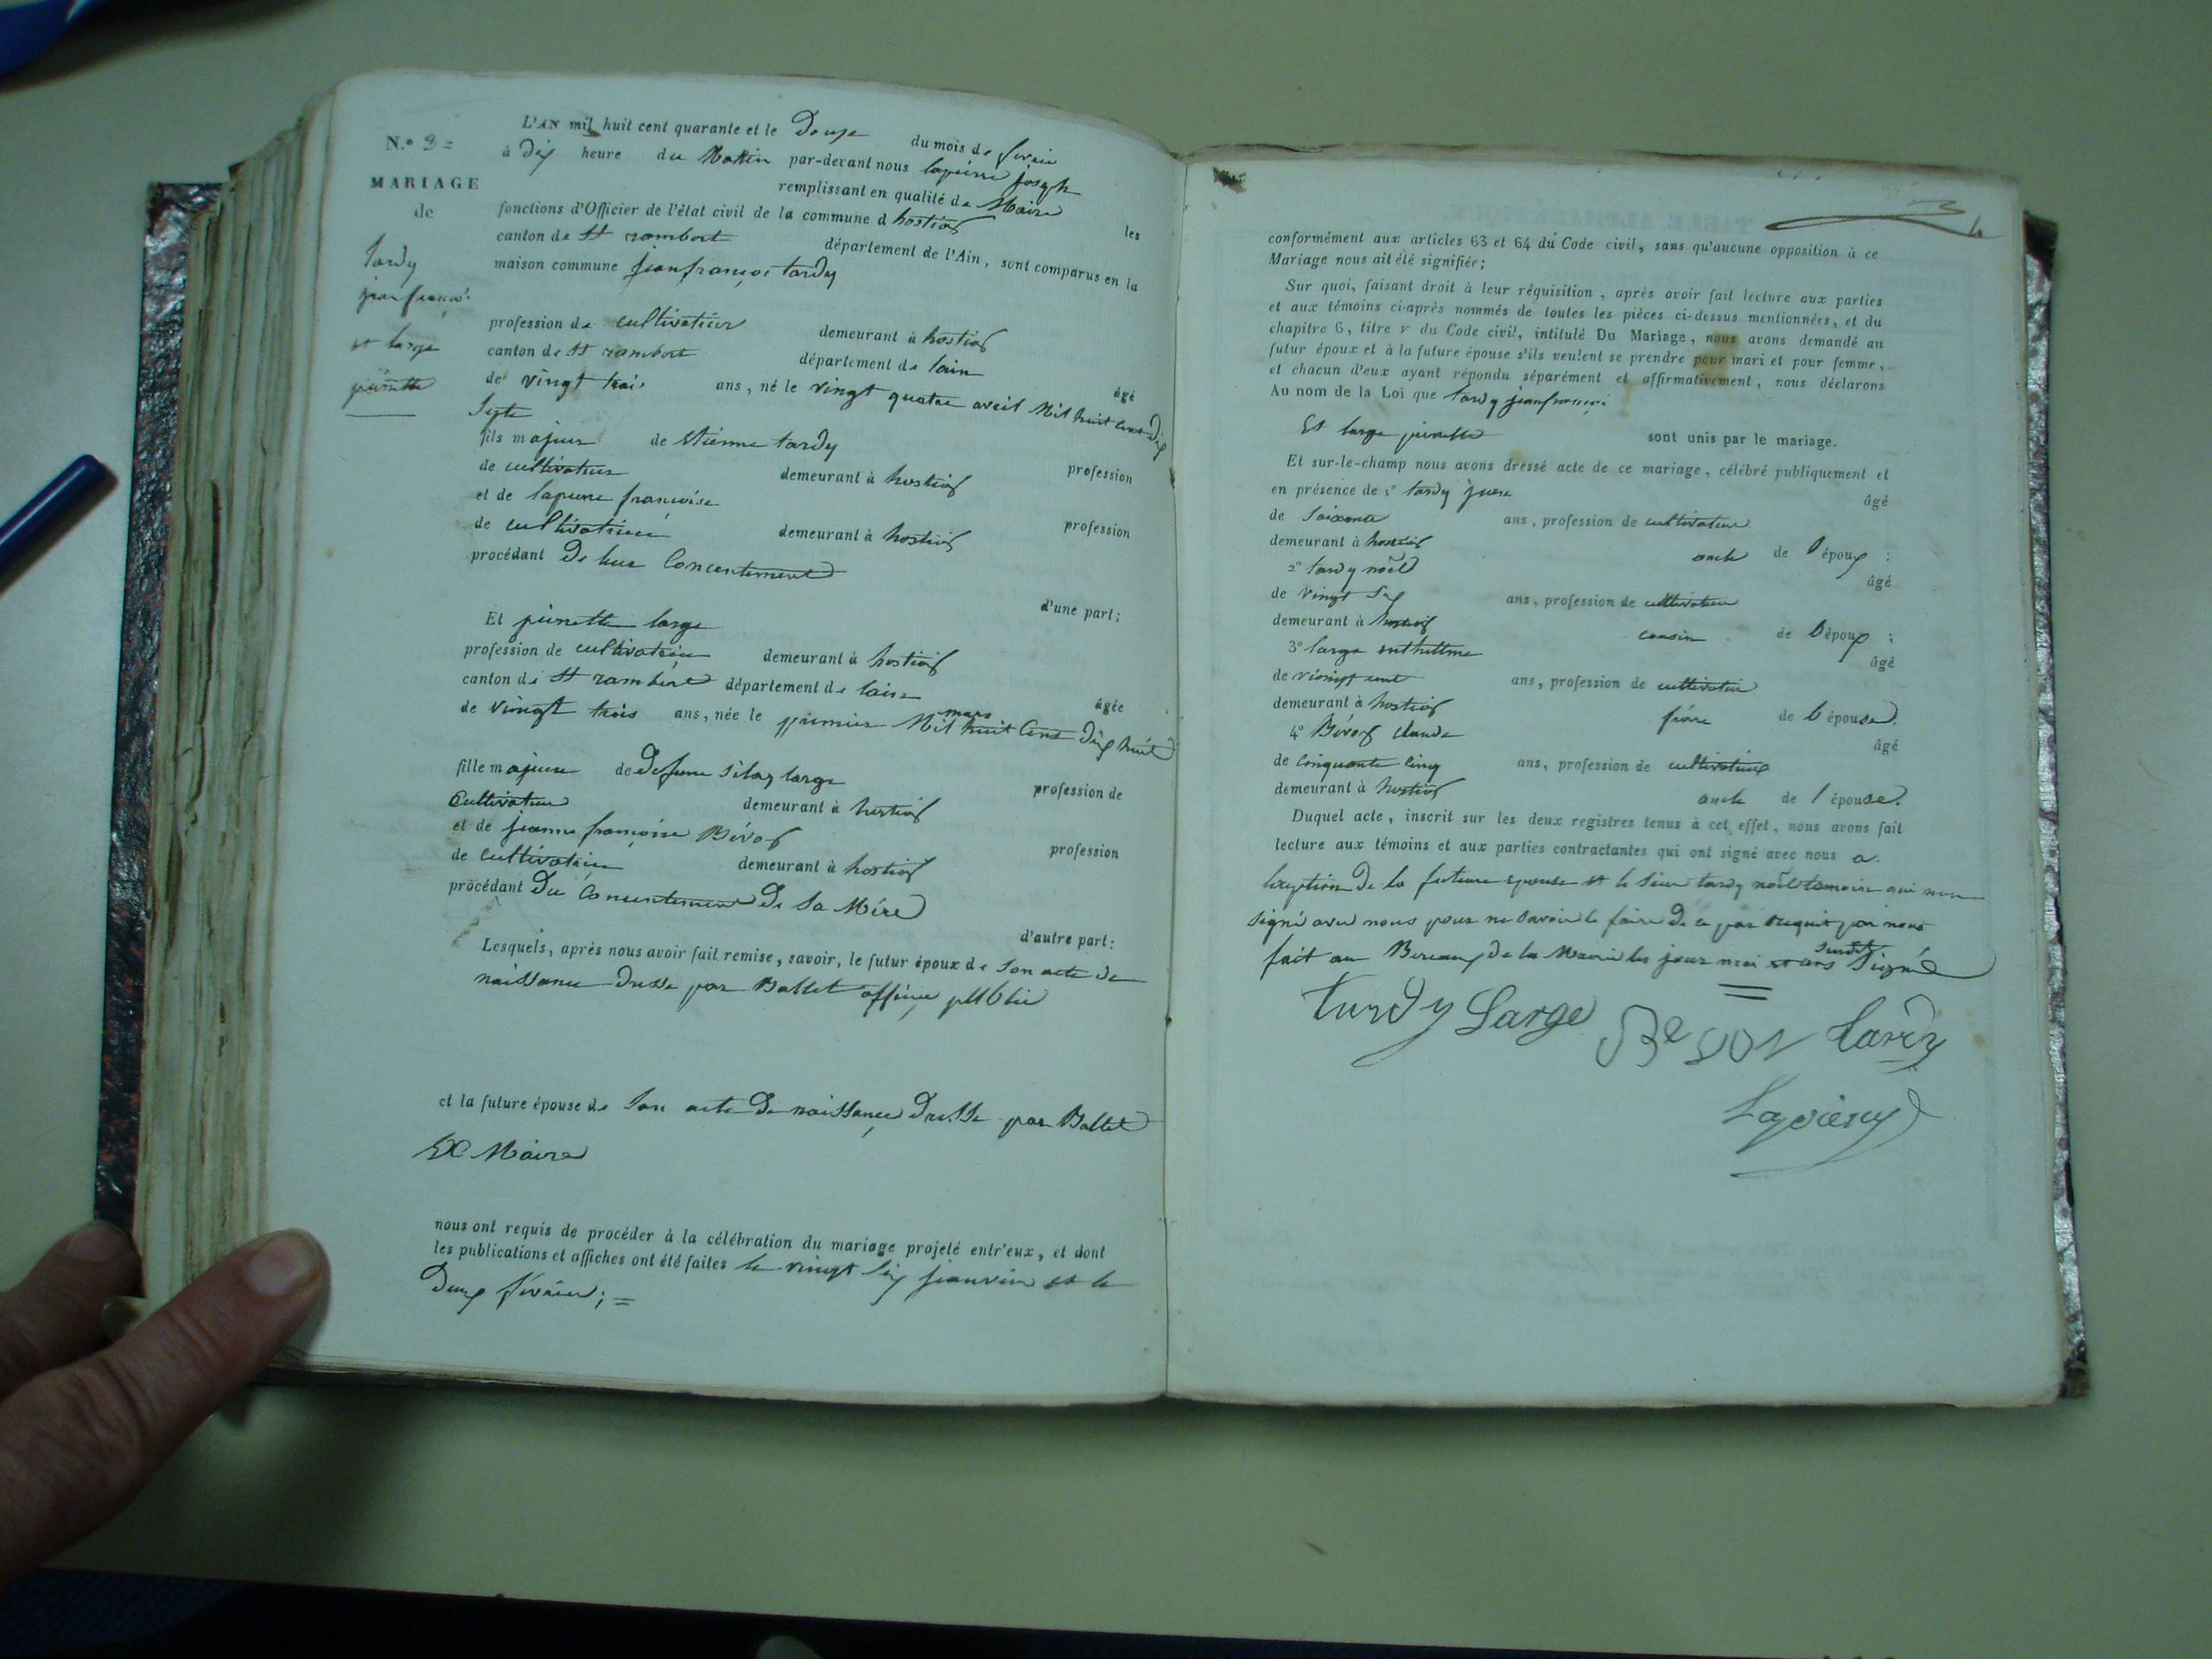 N.º 3 =
MARIAGE
de
tardy
jeanfrançoi
et large
pierrette
L'AN mil huit cent quarante et le Douze du mois de fevrier
à Dix heure du Matin par-devant nous lapierre joseph
remplissant en qualité de Maire les
fonctions d'Officier de l'état civil de la commune d hostias
canton de St rambert département de l'Ain, sont comparus en la
maison commune jeanfrançoi tardy
profession de cultivateur demeurant à hostias
canton de St rambert département de lain âgé
de vingt trois ans, né le vingt quatre avril Mil huit Cent Dix
Sept
fils majeur de Etienne tardy profession
de cultivateur demeurant à hostias
et de lapierre françoise profession
de cultivatrice demeurant à hostias
procédant De leur Concentement
d'une part;
Et pierrette large
profession de cultivatrice demeurant à hostias
canton de St rambert département de lain âgée
de vingt trois ans, née le premier mars Mil huit Cent Dix huit
fille majeure de Defunt Silas large profession de
Cultivateur demeurant à hostias
et de jeanne françoise Bévos profession
de cultivatrice demeurant à hostias
procédant Du Concentement De Sa Mére
d'autre part:
Lesquels, après nous avoir fait remise, savoir, le futur époux de Son acte de
naissance Dressé par Ballet officier publie
et la future épouse de Son acte De naissance Dressé par Ballet
EX Maire
nous ont requis de procéder à la célébration du mariage projeté entr'eux, et dont
les publications et affiches ont été faites le vingt Six janvier et le
Deux février; =
conformément aux articles 63 et 64 du Code civil, sans qu'aucune opposition à ce
Mariage nous ait été signifiée;
Sur quoi, faisant droit à leur réquisition, après avoir fait lecture aux parties
et aux témoins ci-après nommés de toutes les pièces ci-dessus mentionnées, et du
chapitre 6, titre V du Code civil, intitulé Du Mariage, nous avons demandé au
futur époux et à la future épouse s'ils veulent se prendre pour mari et pour femme,
et chacun d'eux ayant répondu séparément et affirmativement, nous déclarons
Au nom de la Loi que tardy jeanfrançoi
Et large pierrette sont unis par le mariage.
Et sur-le-champ nous avons dressé acte de ce mariage, célébré publiquement et
en présence de 1º tardy âgé
de Soixante ans, profession de cultivateur
demeurant à hostias oncle de l époux ;
2º tardy noël âgé
de vingt Six ans, profession de cultivateur
demeurant à hostias cousin de l époux ;
3º large anthelme âgé
de vingt ans, profession de cultivateur
demeurant à hostias frère de l épouse.
4º Bévos Claude âgé
de Cinquante Cinq ans, profession de cultivateur
demeurant à hostias oncle de l épouse.
Duquel acte, inscrit sur les deux registres tenus à cet effet, nous avons fait
lecture aux témoins et aux parties contractantes qui ont signé avec nous a
lexeption De la future epouse et le Sieur tardy noël temoin qui non
signé avec nous pour ne Savoir le faire De ce par requit par nous
fait au Bureaux De la Mairie les jour moi et ans Susdit Signé
tardy Large Bevos tardy
Lapierre